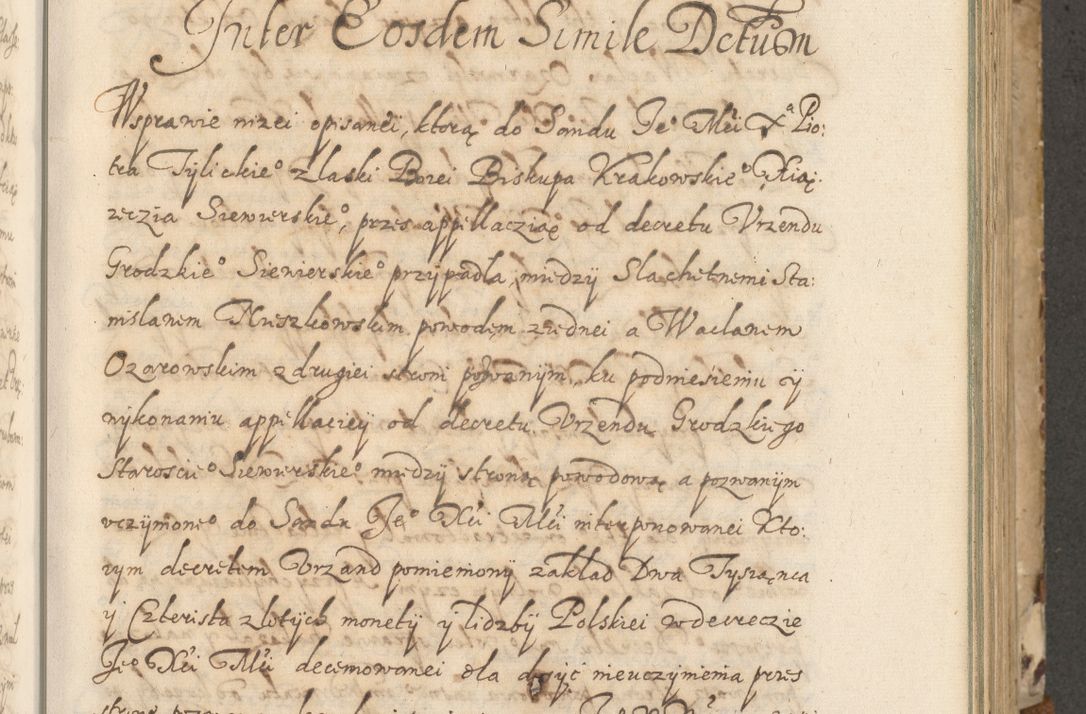 Inter Eosdem Simile Dctum
Wsprawie nizei opisanei, ktorą do Sandu Je° Mći X^a Pio:
tra Tylickie° Zlaski Bozei Biskupa Krakowskie° Xiąz.
zeczia Siewierskie°, przes appellacziąę od decretu Vrzendu
Grodzkie° Siewierskie° przypadla, miedzy Slachetnemi Sta:
nislawem Kreszkowskim powodem ziednei a Waclawem
Ozarowskim zdrugiei stroni pozwanym, ku podniesieniu y
wykonaniu appellaciey od decretu Vrzendu Grodzkiego
Staroscie° Siewierskie° miedzy stroną powodową a pozwanym
vczymione° do Sandu Je° Xći Mći interponowanei Kto:
rym decretem Vrzand pomieniony zaklad Dwa Tysiąnca
y Czterista zlotych monety y lidzby Polskiei wdecreczie
Je° Xći Mći decernowanei dla dosyć nieuczynienia przes